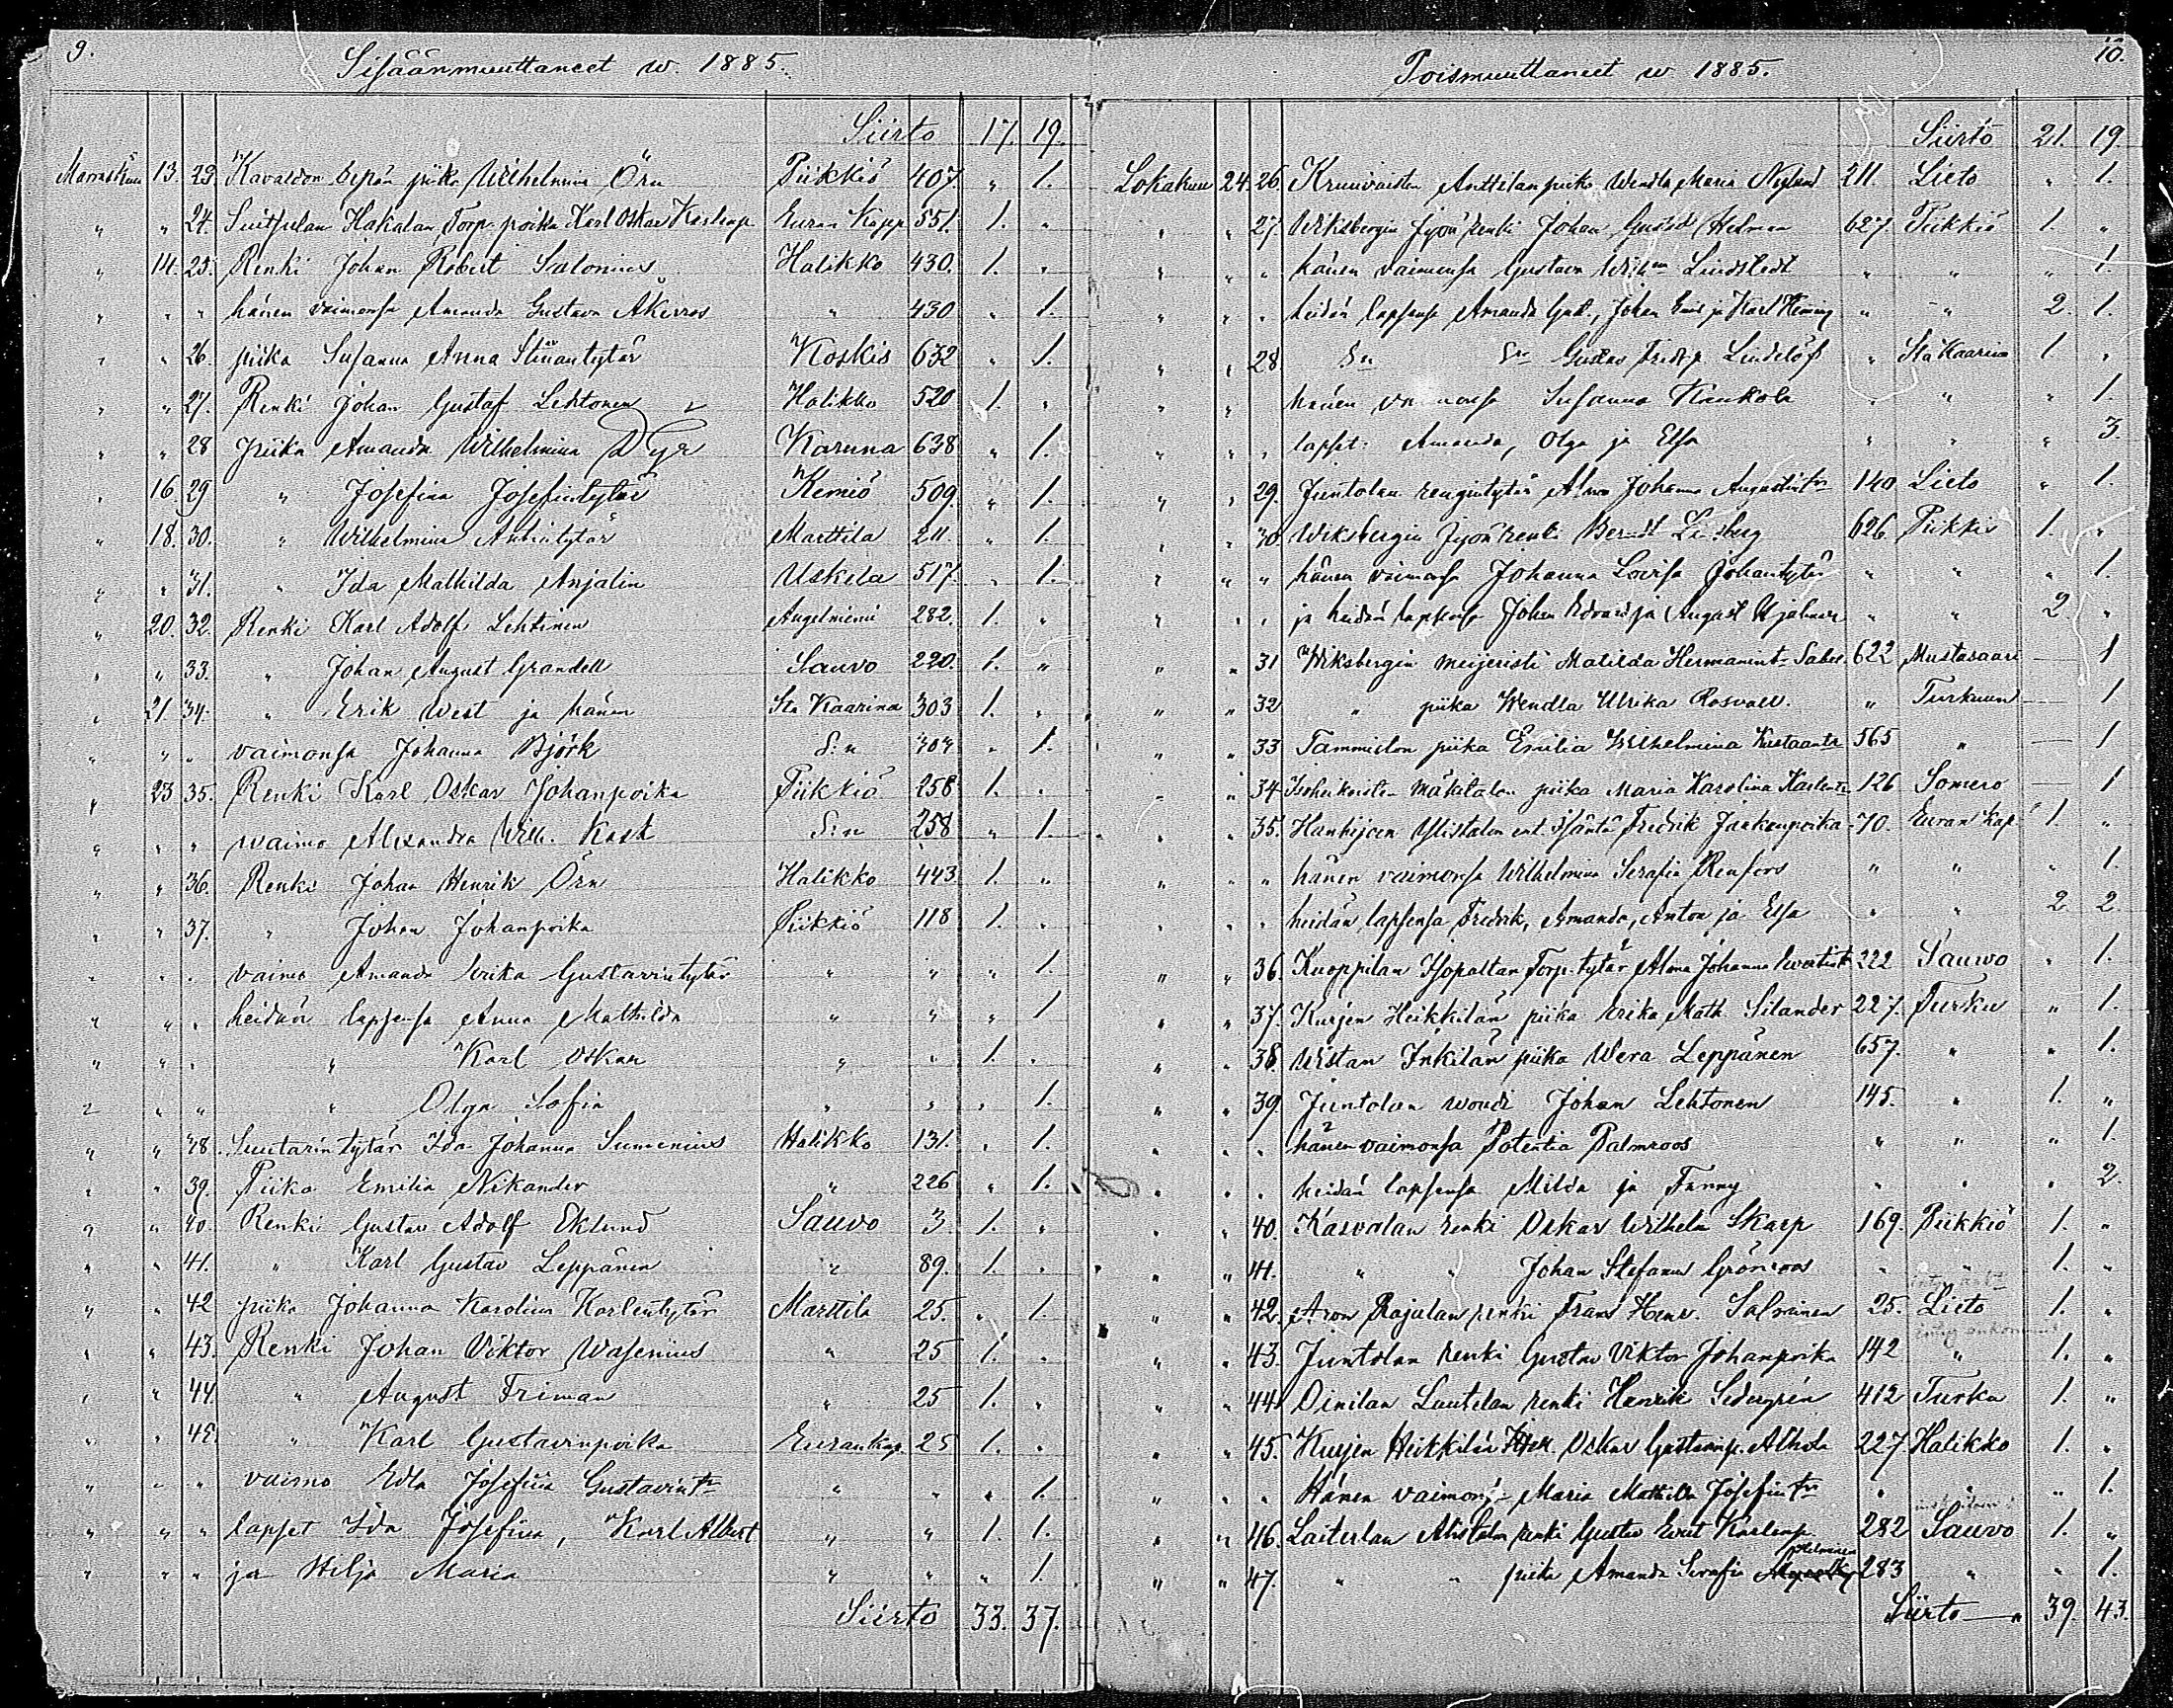 9.
Sisäänmuuttaneet w. 1885.
Siirto 17. 19.
Marraskuu 13. 23. Kavaston Sepän piika Wilhelmina Örn Piikkiö 407. " 1.
" " 24. Hakalan Torp. poika Karl Oskar Karlenp. Euran Kapp 551. 1. "
" 14. 25. Renki Johan Robert Salonius Halikko 430. 1. "
" " " hänen vaimonsa Amanda Gustava Åkerros " 430 " 1.
" " 26. piika Susanna Anna Koskis 632 " 1.
" " 27. Renki Johan Gustaf Lehtonen Halikko 520 1. "
" " 28 piika Amanda Wilhelmina Dyr Karuna 638 " 1.
" 16. 29 " Josefina Josefintytär Kemiö 509. " 1.
" 18. 30. " Wilhelmina Antintytär Marttila 211. " 1.
" " 31. " Ida Mathilda Anjalin Uskela 517. " 1.
" 20. 32. Renki Karl Adolf Lehtinen Angelniemi 282. 1. "
" " 33. " Johan August Grandell Sauvo 220. 1. "
" 21 34. " Erik West ja hänen Sta Kaarina 303 1. "
" " " vaimonsa Johanna Björk S:n 303 " 1.
" 23 35. Renki Karl Oskar Johanpoika Piikkiö 258 1. "
" " " waimo Alexandra Wilh. Kask S:n 258 " 1.
" " 36. Renki Johan Henrik Örn Halikko 443 1. "
" " 37. " Johan Johanpoika Piikkiö 118 1. "
" " " vaimo Amanda Erika Gustavintytär " " " 1.
" " " heidän lapsensa Anna Mathilda " " " 1
" " " " Karl Oskar " " 1. "
" " " " Olga Sofia " " " 1.
" " 38. Suutarintytär Ida Johanna Sumenius Halikko 131. " 1.
" " 39. Piika Emilia Nikander " 226 " 1.
" " 40. Renki Gustav Adolf Eklund Sauvo 3 1. "
" " 41. " Karl Gustav Leppänen " 89. 1. "
" " 42 piika Johanna Karolina Karlentytär Marttila 25. " 1.
" " 43. Renki Johan Viktor Wasenius " 25 1. "
" " 44. " August Friman " 25 1. "
" " 45. " Karl Gustavinpoika Eurankap. 25 1. "
" " " vaimo Edla Josefiia Gustavint:r " " " 1.
" " " lapset Ida Josefina, Karl Albert " " 1. 1.
" " " ja Hilja Maria " " " 1.
Siirto 33. 37.
10.
Poismuuttaneet w 1885.
Siirto 21. 19.
Lokakuu 24. 26. Anttilan piika Wendla Maria Nylund 211. Lieto " 1.
" " 27. Wiksbergin renki Johan Gustaf Helman 627. Piikkiö 1. "
" " " hänen vaimonsa Gustava Lindstedt " " " 1.
" " " heidän lapsensa Amanda Gust., Johan Emil ja Karl " " 2. 1.
" " 28 S:n S:n Gustav Fredrik Lindelöf " Sta Kaarina 1 "
" " " hänen vaimonsa Susanna Kaukola " " " 1.
" " " lapset: Amanda, Olga ja Elsa " " " 3.
" " 29. Juntolan rengintytär Alma Johanna 140 Lieto " 1.
" " 30. Wiksbergin renki Berndt 626. Piikkiö 1. "
" " " hänen vaimonsa Johanna Lovisa Johantytär " " " 1.
" " " ja heidän lapsensa Johan Edvard ja August Hjalmar " " 2. "
" " 31 Wiksbergin meijeristi Matilda Hermanint. 622 Mustasaari — 1
" " 32 " piika Wendla Ulrika Rosvall. " Turkuun — 1
" " 33 Tammiston piika Emilia Wilhelmina Kustaantr 565 " — 1
" " 34 Mäkitalon piika Maria Karolina 126 Somero — 1
" " 35. Hanhijoen Ylistalon ent. isäntä Fredrik Jaakonpoika 70. Euran Kap 1. "
" " " hänen vaimonsa Wilhelmina Serafia Renfors " " " 1.
" " " heidän lapsensa Fredrik, Amanda, Anton ja Elsa " " 2 2.
" " 36. Kuoppilan Isopaltan Torp. tytär Alma Johanna 222 Sauvo " 1.
" " 37. Kurjen Heikkilän piika Erika Math. Silander 227. Turku " 1.
" " 38. Wistan Inkilän piika Wera Leppänen 657. " " 1.
" " 39. Juntolan woudi Johan Lehtonen 145. " 1. "
" " " hänen vaimonsa Potentia Palmroos " " " 1.
" " " heidän lapsensa Milda ja Fanny " " " 2.
" " 40. Kasvalan renki Oskar Wilhelm Skarp 169. Piikkiö 1. "
" " 41. " " Johan Stefanus Grönroos " " 1. "
" " 42. Aron Rajalan renki Frans Henr. Salminen 25. Lieto 1. "
" " 43. Juntolan renki Gustav Viktor Johanpoika 142 " 1. "
" " 44. Oinilan Lautelan renki Henrik Sedergrén 412 Turku 1. "
" " 45. Kurjen Heikkilän Oskar Gustavinp. Alhola 227. Halikko 1. "
" " " Hänen vaimonsa Maria Mathilda Josefint:r " " " 1.
" " 46. Alistalon renki Gustav Evert Karlenp. 282 Sauvo 1. "
" " 47. " " piika Amanda Serafia 283 " " 1.
Siirto — " 39. 43.